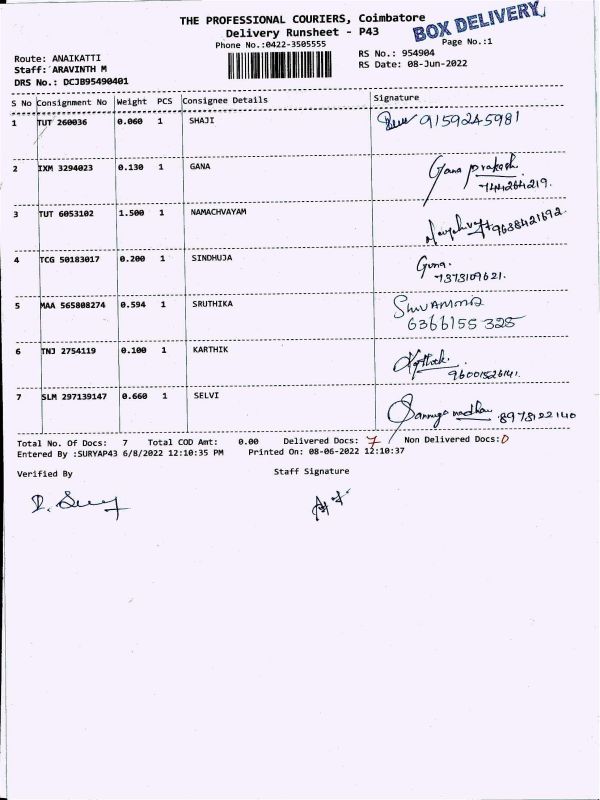 THE PROFESSIONAL COURIERS, Coimbatore
BOX DELIVERY
Delivery Runsheet - P43
Phone No.:0422-3505555
Page No.:1
Route: ANAIKATTI
RS No.: 954904
Staff: ARAVINTH M
RS Date: 08-Jun-2022
DRS No.: DCJB95490401
S No Consignment No Weight PCS Consignee Details Signature
1 TUT 260036 0.060 1 SHAJI 9159245981
2 IXM 3294023 0.130 1 GANA Gana prakash
3 TUT 6053102 1.500 1 NAMACHVAYAM
9638421692
4 TCG 50183017 0.200 1 SINDHUJA Guna.
7373109621.
5 MAA 565808274 0.594 1 SRUTHIKA
6366155 325
6 TNJ 2754119 0.100 1 KARTHIK Karthick.
96001526141.
7 SLM 297139147 0.660 1 SELVI
8978122140
Total No. Of Docs: 7 Total COD Amt: 0.00 Delivered Docs: 7 Non Delivered Docs: 0
Entered By :SURYAP43 6/8/2022 12:10:35 PM Printed On: 08-06-2022 12:10:37
Verified By Staff Signature